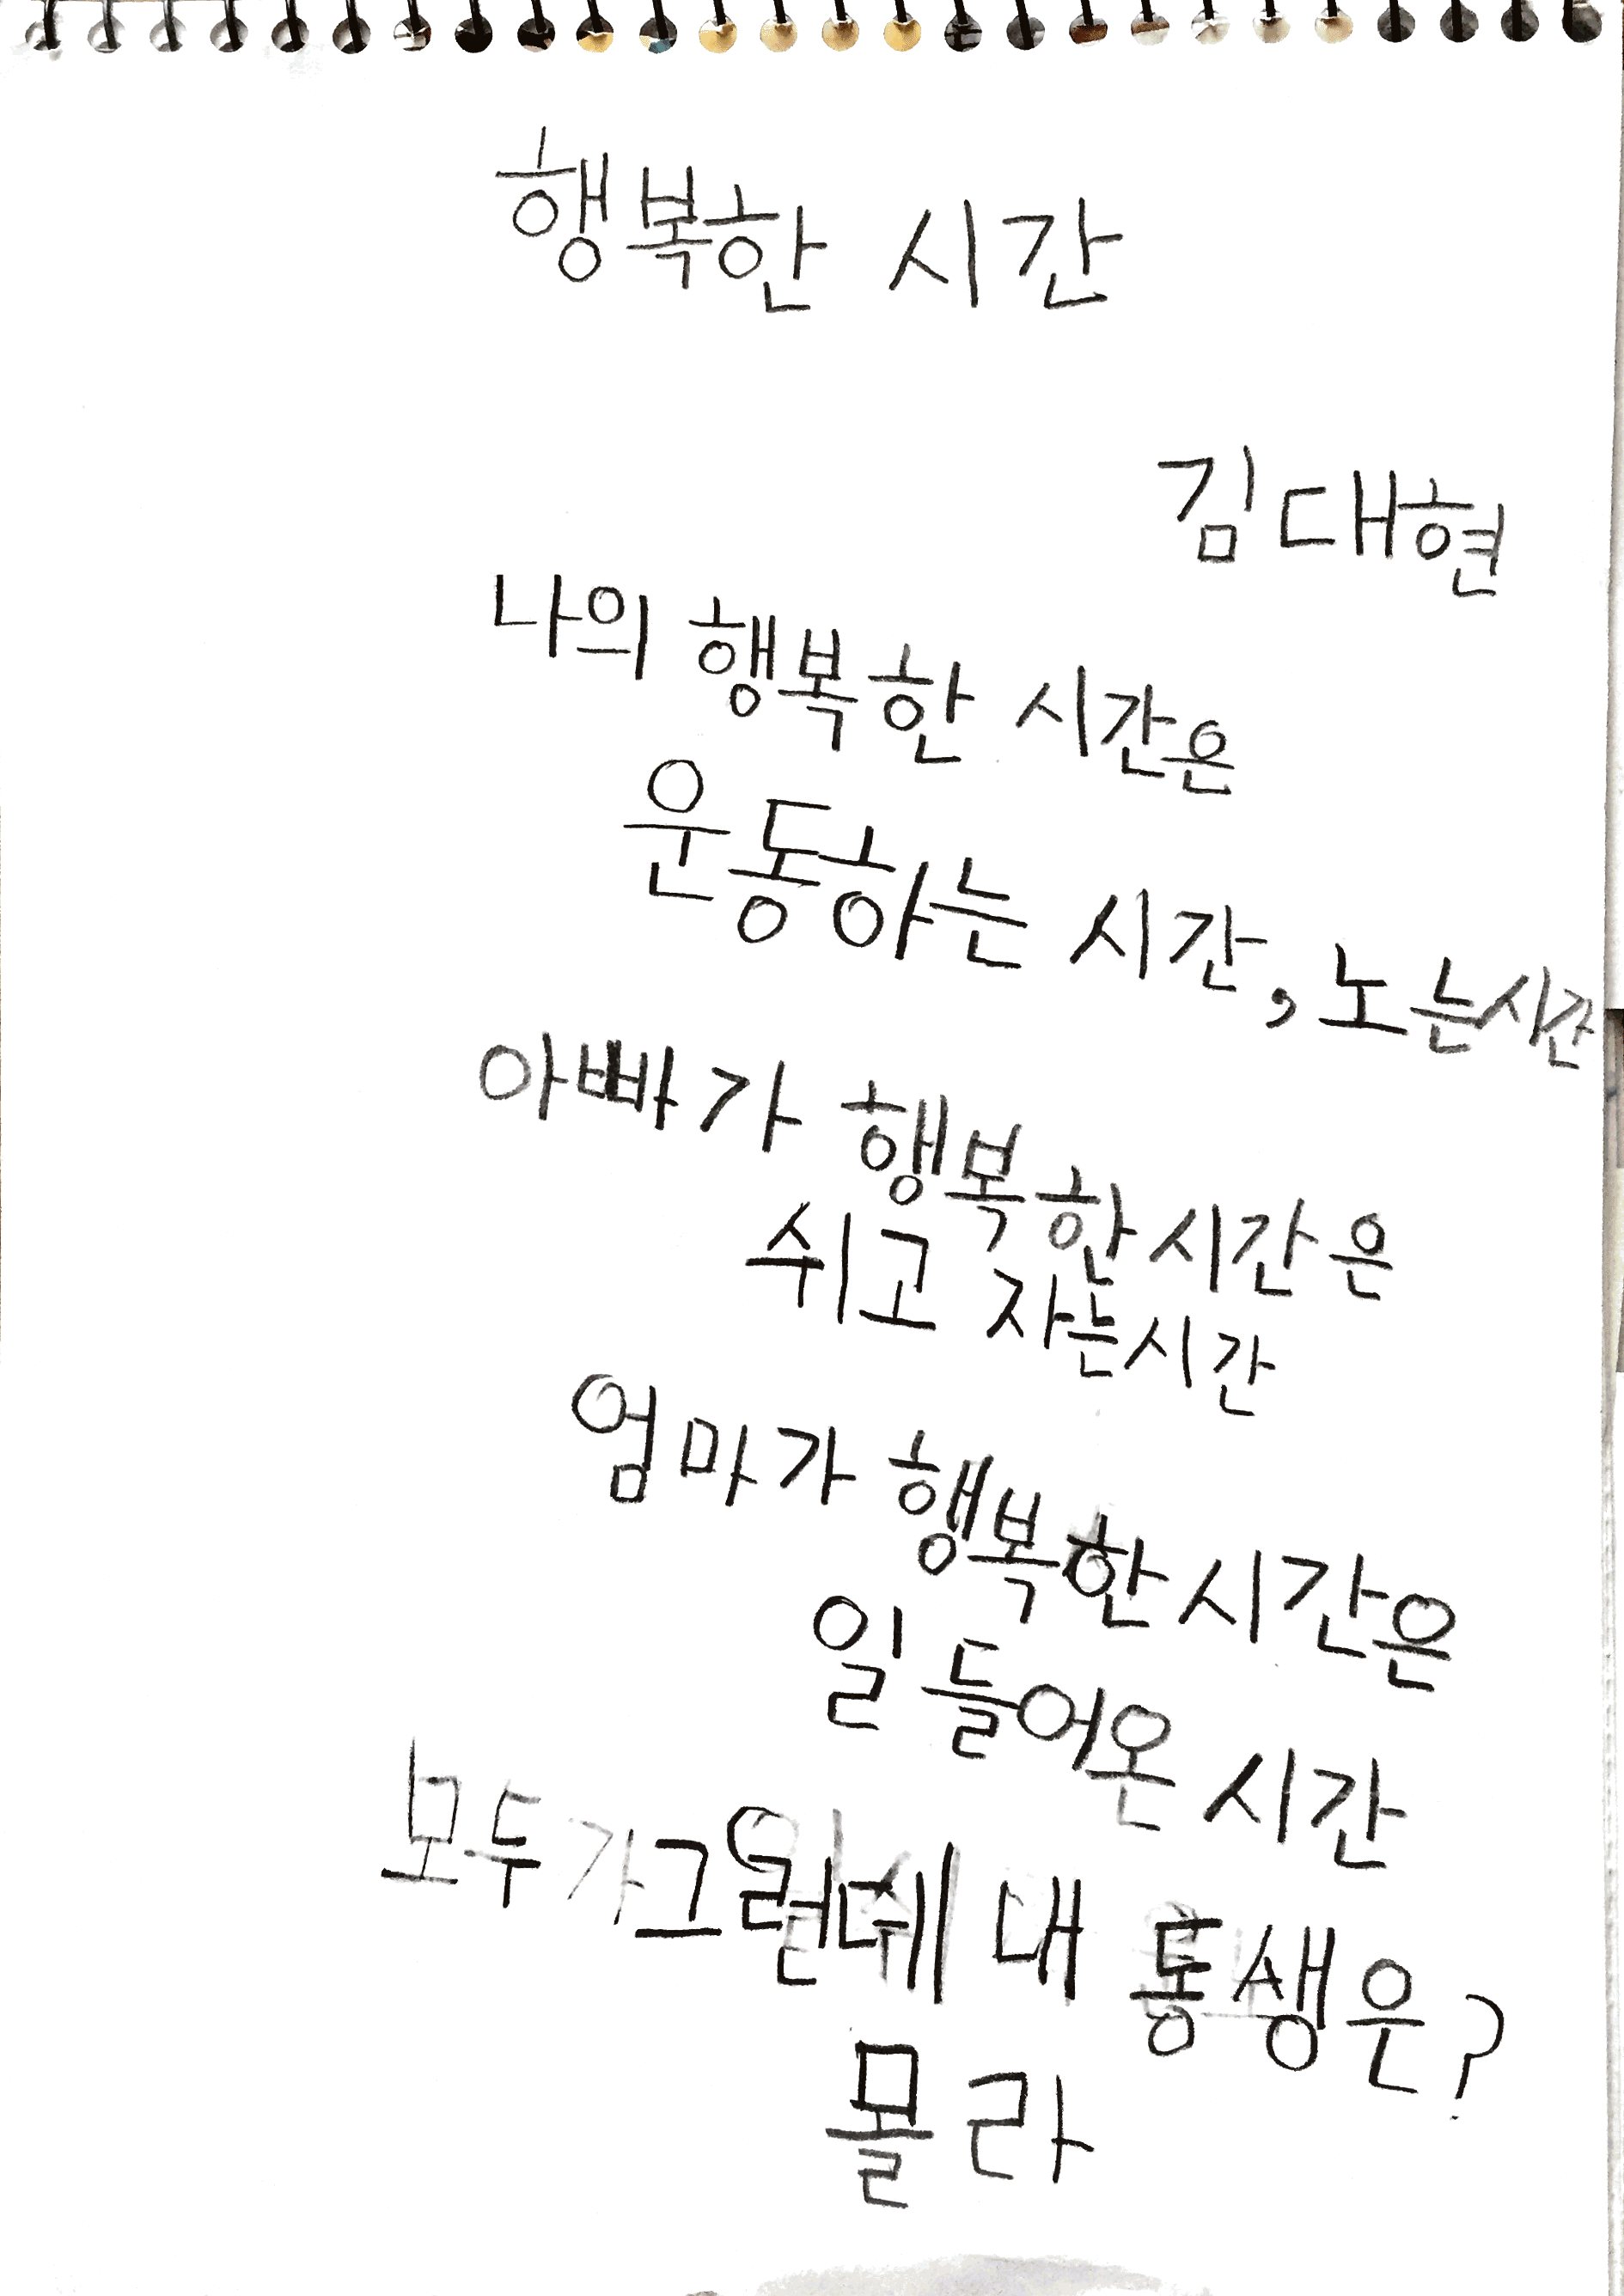 행복한 시간
김대현
나의 행복한 시간은
운동하는 시간, 노는시간
아빠가 행복한시간은
쉬고 자는시간
엄마가 행복한시간은
일 들어온 시간
모두가그런데 내 동생은?
몰라